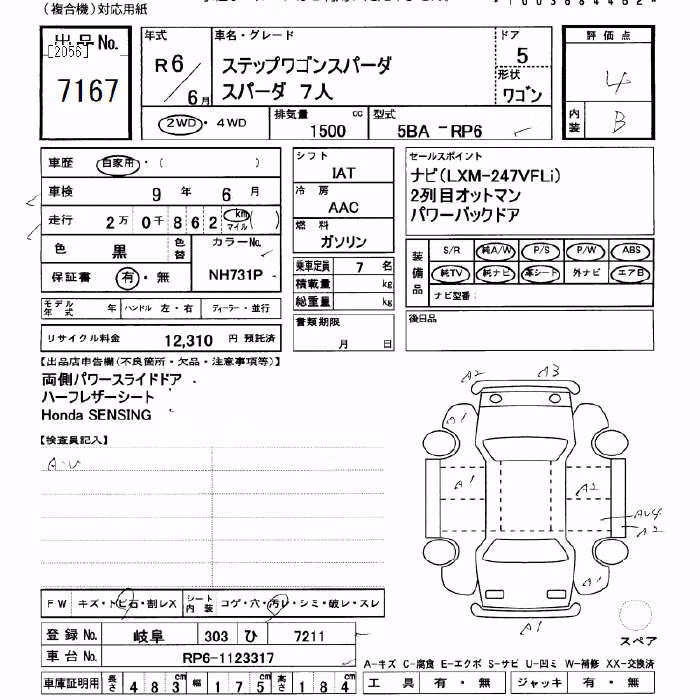 (複合機)対応用紙
出品No.
[2056]
7167
年式
R6/6月
車名・グレード
ステップワゴンスパーダ
スパーダ 7人
ドア
5
形状
ワゴン
評価点
4
内装
B
2WD・4WD
排気量
1500 cc
型式
5BA-RP6
車歴 自家用・( )
車検 9年 6月
走行 2万 0千 8 6 2 km マイル ( )
色 黒
色替
カラーNo.
NH731P
保証書 有・無
モデル年式 年 ハンドル 左・右 ディーラー・並行
リサイクル料金 12,310 円 預託済
シフト
IAT
冷房
AAC
燃料
ガソリン
乗車定員 7 名
積載量 kg
総重量 kg
書類期限
月 日
セールスポイント
ナビ(LXM-247VFLi)
2列目オットマン
パワーバックドア
装備品
S/R 純A/W P/S P/W ABS
純TV 純ナビ 革シート 外ナビ エアB
ナビ型番:
後日品
【出品店申告欄(不良箇所・欠品・注意事項等)】
両側パワースライドドア
ハーフレザーシート
Honda SENSING
【検査員記入】
A・U
A2 A3
A1
A1 A2
AU4
A2
A1
A1
スペア
FW キズ・トビ石・割レX
シート内装 コゲ・穴・汚レ・シミ・破レ・スレ
登録No. 岐阜 303 ひ 7211
車台No. RP6-1123317
車庫証明用 長さ 483cm 幅 175cm 高さ 184cm
A-キズ C-腐食 E-エクボ S-サビ U-凹ミ W-補修 XX-交換済
工具 有・無 ジャッキ 有・無